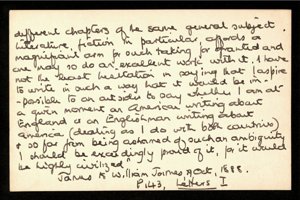 different chapters of the same general subject.
Literature, fiction in particular, affords a
magnificent arm for such taking for granted and
one may so do an excellent work with it. I have
not the least hesitation in saying that I aspire
to write in such a way that it would be im-
-possible to an outsider to say whether I am at
a given moment an American writing about
England or an Englishman writing about
America (dealing as I do with both countries)
& so far from being ashamed of such an ambiguity
I should be exceedingly proud of it, for it would
be highly civilized."
James to William James 29 Oct, 1888.
P143, Letters I